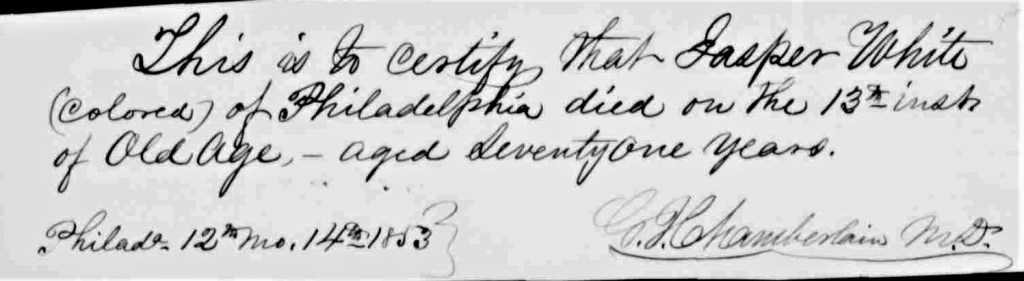 This is to certify that Jasper White
(colored) of Philadelphia died on the 13th inst.
of Old Age, – aged Seventyone years.
Philada. 12th mo. 14th 1853
G. F. Chamberlain M.D.